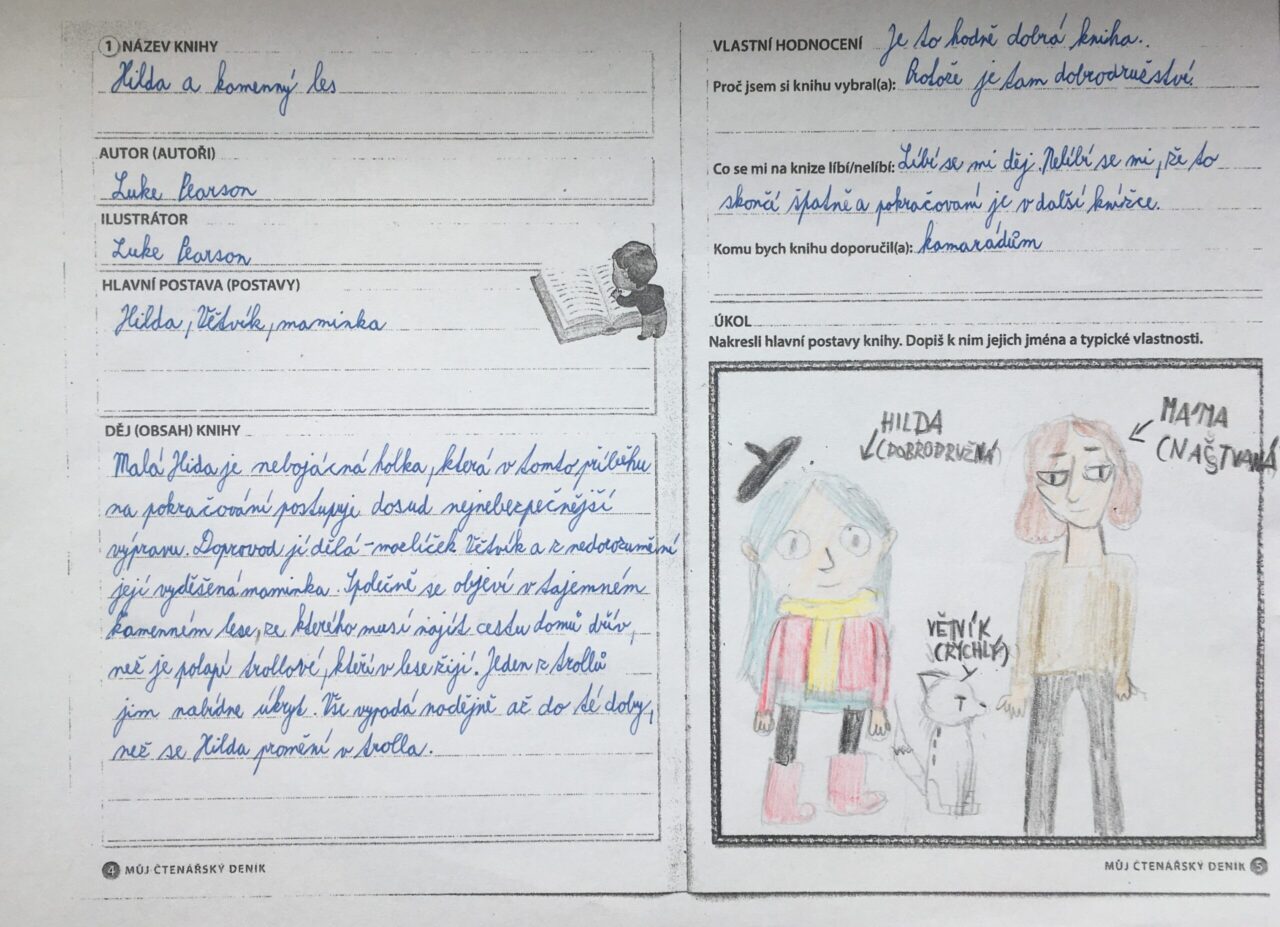 1 NÁZEV KNIHY
Hilda a kamenný les
AUTOR (AUTOŘI)
Luke Pearson
ILUSTRÁTOR
Luke Pearson
HLAVNÍ POSTAVA (POSTAVY)
Hilda, Větvík, maminka
DĚJ (OBSAH) KNIHY
Malá Hida je nebojácná holka, která v tomto příběhu
na pokračování postupuje dosud nejnebezpečnější
výpravu. Doprovod jí dělá - mazlíček Větvík a z nedorozumění
její vyděšená maminka. Společně se objeví v tajemném
kamenném lese, ze kterého musí najít cestu domů dřív,
než je polapí trollové, kteří v lese žijí. Jeden z trollů
jim nabídne úkryt. Vše vypadá nadějně až do té doby,
než se Hilda promění v trolla.
4 MŮJ ČTENÁŘSKÝ DENÍK
VLASTNÍ HODNOCENÍ Je to hodně dobrá kniha.
Proč jsem si knihu vybral(a): Protože je tam dobrodružství.
Co se mi na knize líbí/nelíbí: Líbí se mi děj. Nelíbí se mi, že to
skončí špatně a pokračovaní je v další knížce.
Komu bych knihu doporučil(a): kamarádům
ÚKOL
Nakresli hlavní postavy knihy. Dopiš k nim jejich jména a typické vlastnosti.
HILDA
(DOBRODRUŽNÁ)
MÁMA
(NAŠTVANÁ
VĚTVÍK
(RYCHLÝ)
MŮJ ČTENÁŘSKÝ DENÍK 5